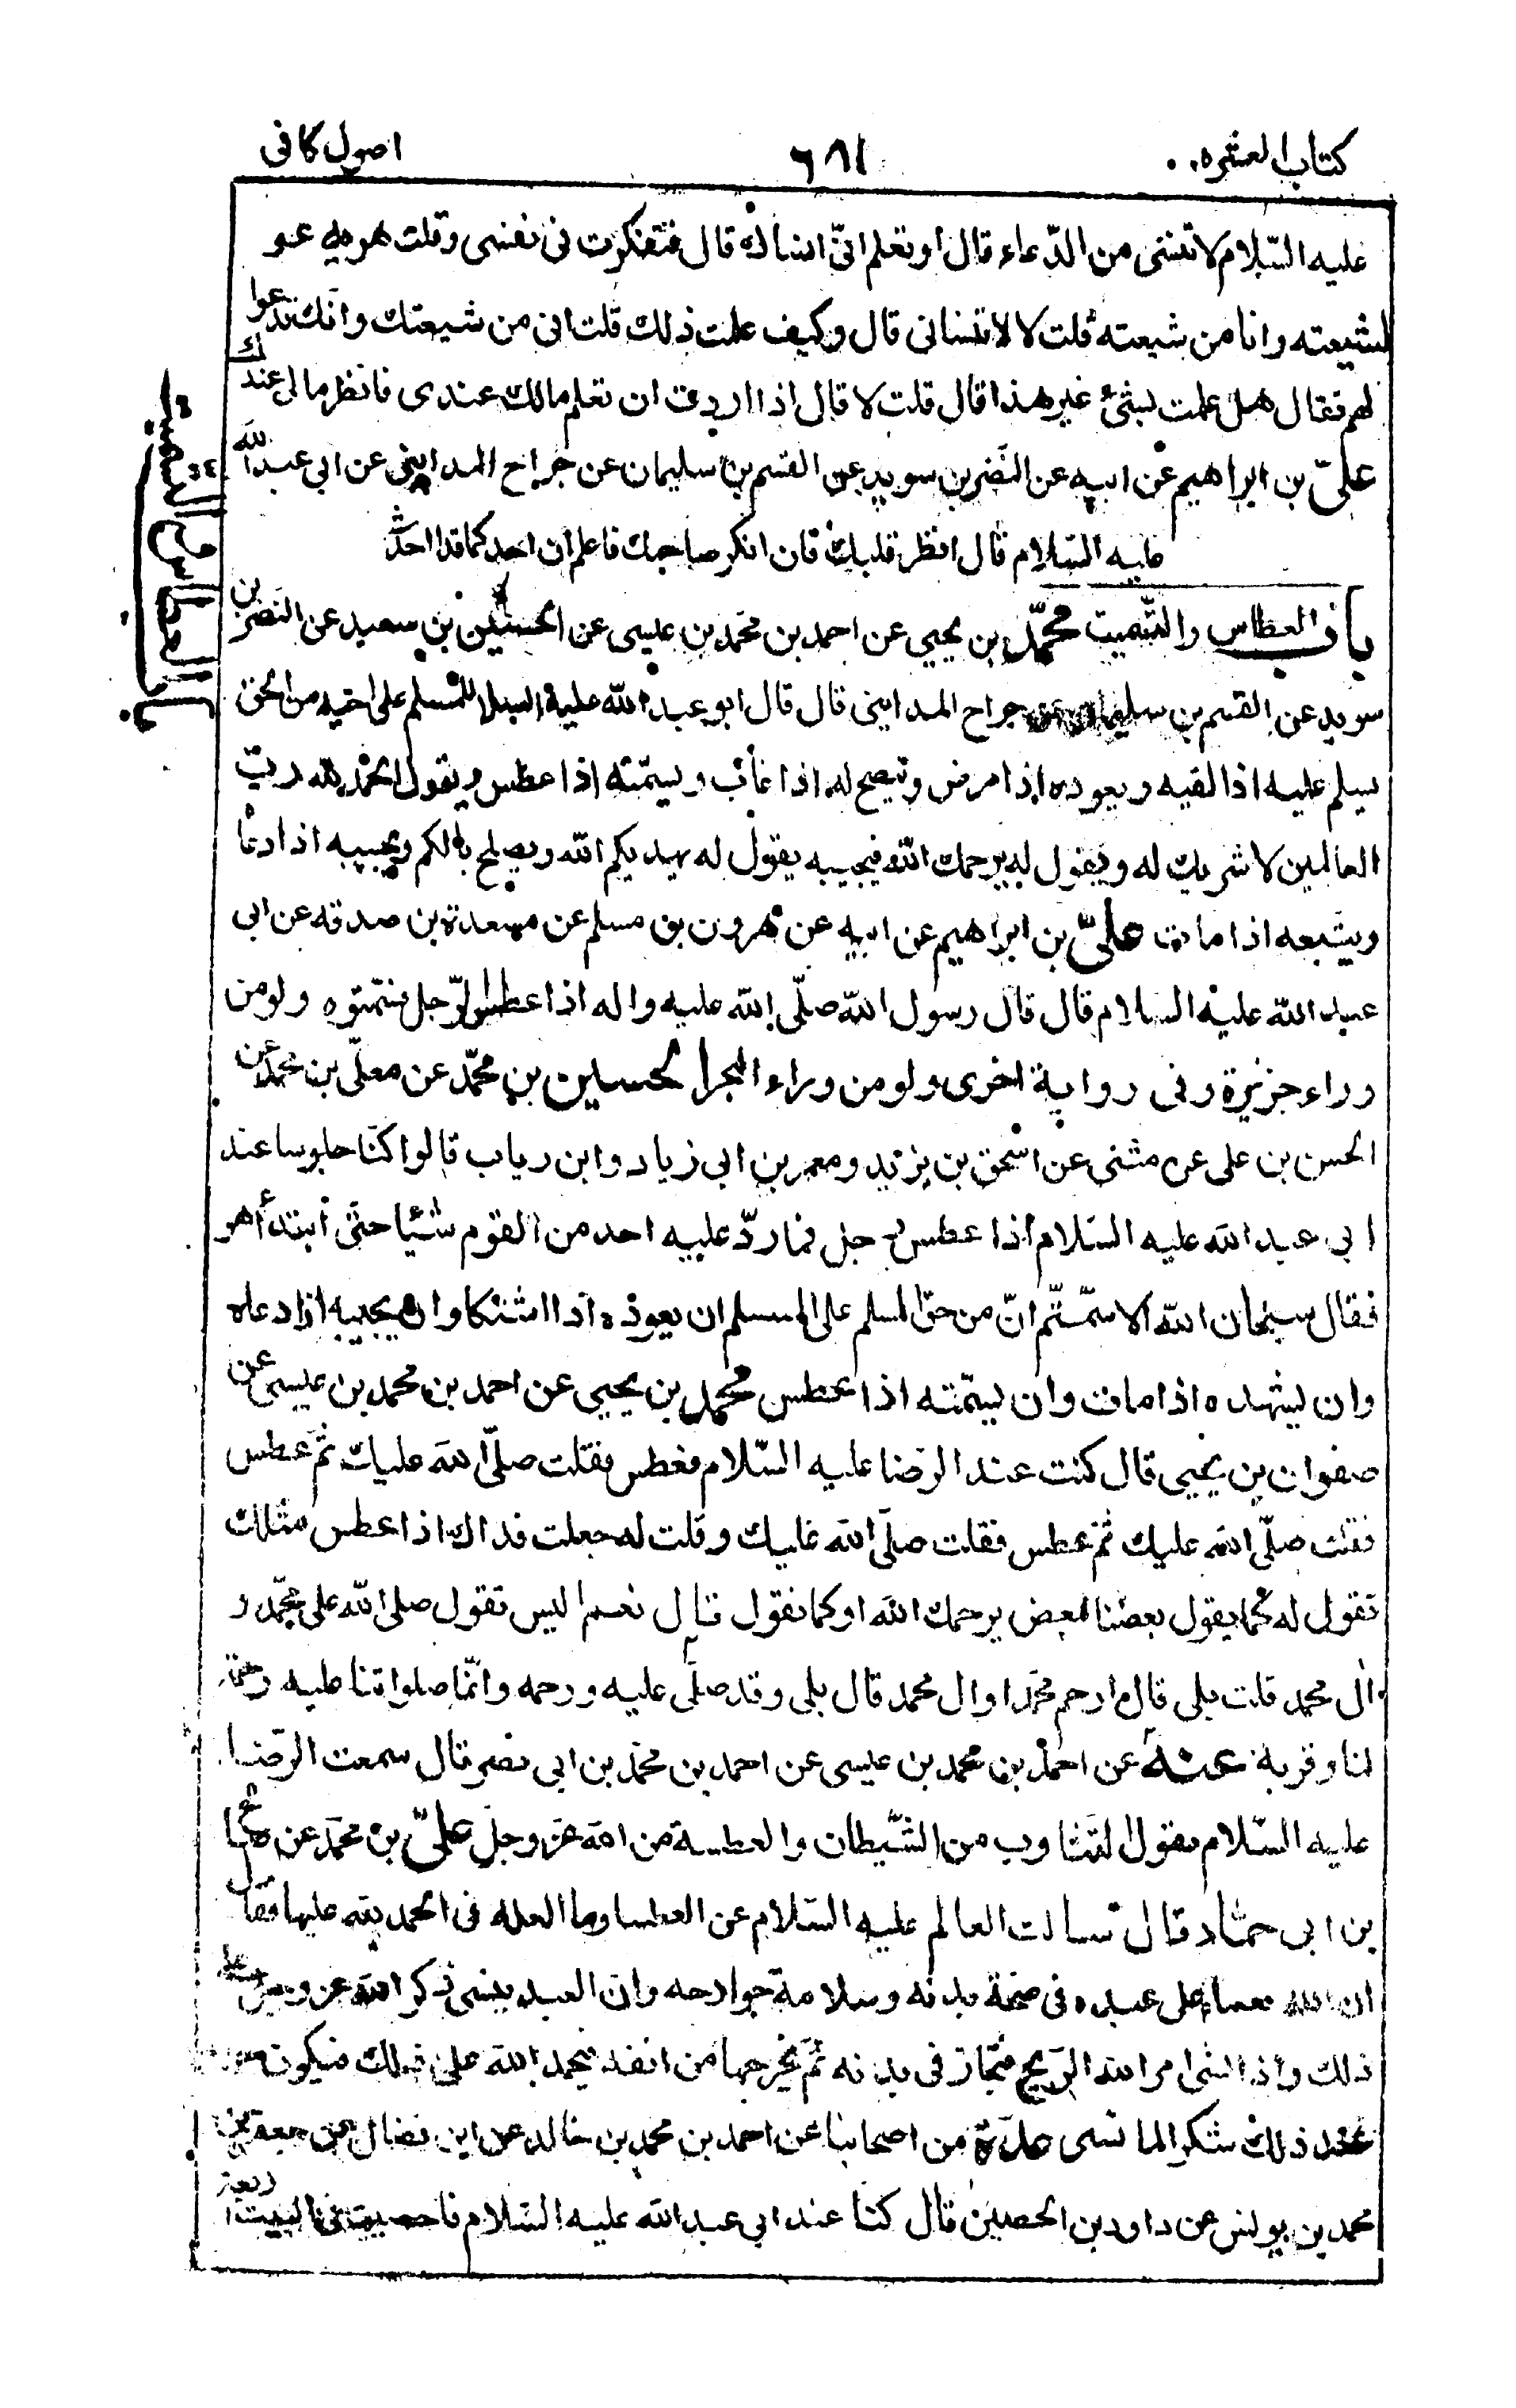 كتاب العشره
٦٨١
اصول كافى
عليه السّلام لا تنسنى من الدّعاء قال او تعلم انّى انساك قال فتفكرت فى نفسى وقلت هو يدعو
لشيعته وانا من شيعته قلت لا لا تنسانى قال وكيف علمت ذلك قلت انى من شيعتك وانك تدعوا
لهم فقال هل علمت بشئ غير هذا قال قلت لا قال اذا اردت ان تعلم مالك عندى فانظر مالى عندك
علىّ بن ابراهيم عن ابيه عن النضر بن سويد عن القسم بن سليمان عن جراح المداينى عن ابى عبد الله
عليه السّلام قال انظر قلبك فان انكر صاحبك فاعلم ان احدكما قد احدث
باب العطاس والتسميت محمّد بن يحيى عن احمد بن محمد بن عيسى عن الحسين بن سعيد عن النضر بن
سويد عن القسم بن سليمان عن جراح المداينى قال قال ابو عبد الله عليه السلام للمسلم على اخيه من الحق
يسلم عليه اذا لقيه ويعوده اذا مرض وينصح له اذا غاب ويسمّته اذا عطس ويقول الحمد لله ربّ
العالمين لا شريك له ويقول له يرحمك الله فيجيبه يقول له يهديكم الله ويصلح بالكم ويجيبه اذا دعا
ويتبعه اذا مات علىّ بن ابراهيم عن ابيه عن هرون بن مسلم عن مسعدة بن صدقه عن ابى
عبد الله عليه السلام قال قال رسول الله صلّى الله عليه واله اذا عطس الرّجل فسمّتوه ولو من
وراء جزيرة وفى رواية اخرى ولو من وراء البحر الحسين بن محمّد عن معلّى بن محمد عن
الحسن بن على عن مثنى عن اسحق بن يزيد ومعمر بن ابى زياد وابن رياب قالوا كنّا جلوسا عند
ابى عبد الله عليه السّلام اذا عطس رجل فما ردّ عليه احد من القوم شيئا حتّى ابتدأ هو
فقال سبحان الله الا سمّتّم انّ من حقّ المسلم على المسلم ان يعوده اذا اشتكا وان يجيبه اذا دعاه
وان يشهده اذا مات وان يسمّته اذا عطس محمد بن يحيى عن احمد بن محمد بن عيسى عن
صفوان بن يحيى قال كنت عند الرضا عليه السّلام فعطس فقلت صلّى الله عليك ثمّ عطس
فقلت صلّى الله عليك ثمّ عطس فقلت صلّى الله عليك وقلت له جعلت فداك اذا عطس مثلك
نقول له كما يقول بعضنا لبعض يرحمك الله او كما نقول قال نعم اليس تقول صلى الله على محمّد و
ال محمد قلت بلى قال ارحم محمّدا وال محمد قال بلى وقد صلّى عليه ورحمه وانّما صلواتنا عليه رحمة
لنا وقربة عنه عن احمد بن محمد بن عيسى عن احمد بن محمّد بن ابى نصر قال سمعت الرّضا
عليه السّلام يقول التثاوب من الشّيطان والعطسة من الله عزّ وجلّ علىّ بن محمّد عن صالح
بن ابى حمّاد قال سالت العالم عليه السّلام عن العطسة وما العله فى الحمد لله عليها فقال
ان الله نعما على عبده فى صحّة بدنه وسلامة جوارحه وان العبد ينسى ذكر الله عز وجل على
ذلك واذا نسى امر الله الرّيح فتجاز فى بدنه ثمّ يخرجها من انفه فيحمد الله على ذلك فيكون
عند ذلك شكرا لما نسى عدّة من اصحابنا عن احمد بن محمد بن خالد عن ابن فضال عن جعفر بن
محمد بن يونس عن داود بن الحصين قال كنّا عند ابى عبد الله عليه السّلام فاحصيت فى البيت اربعة
باب العطاس والتسميت